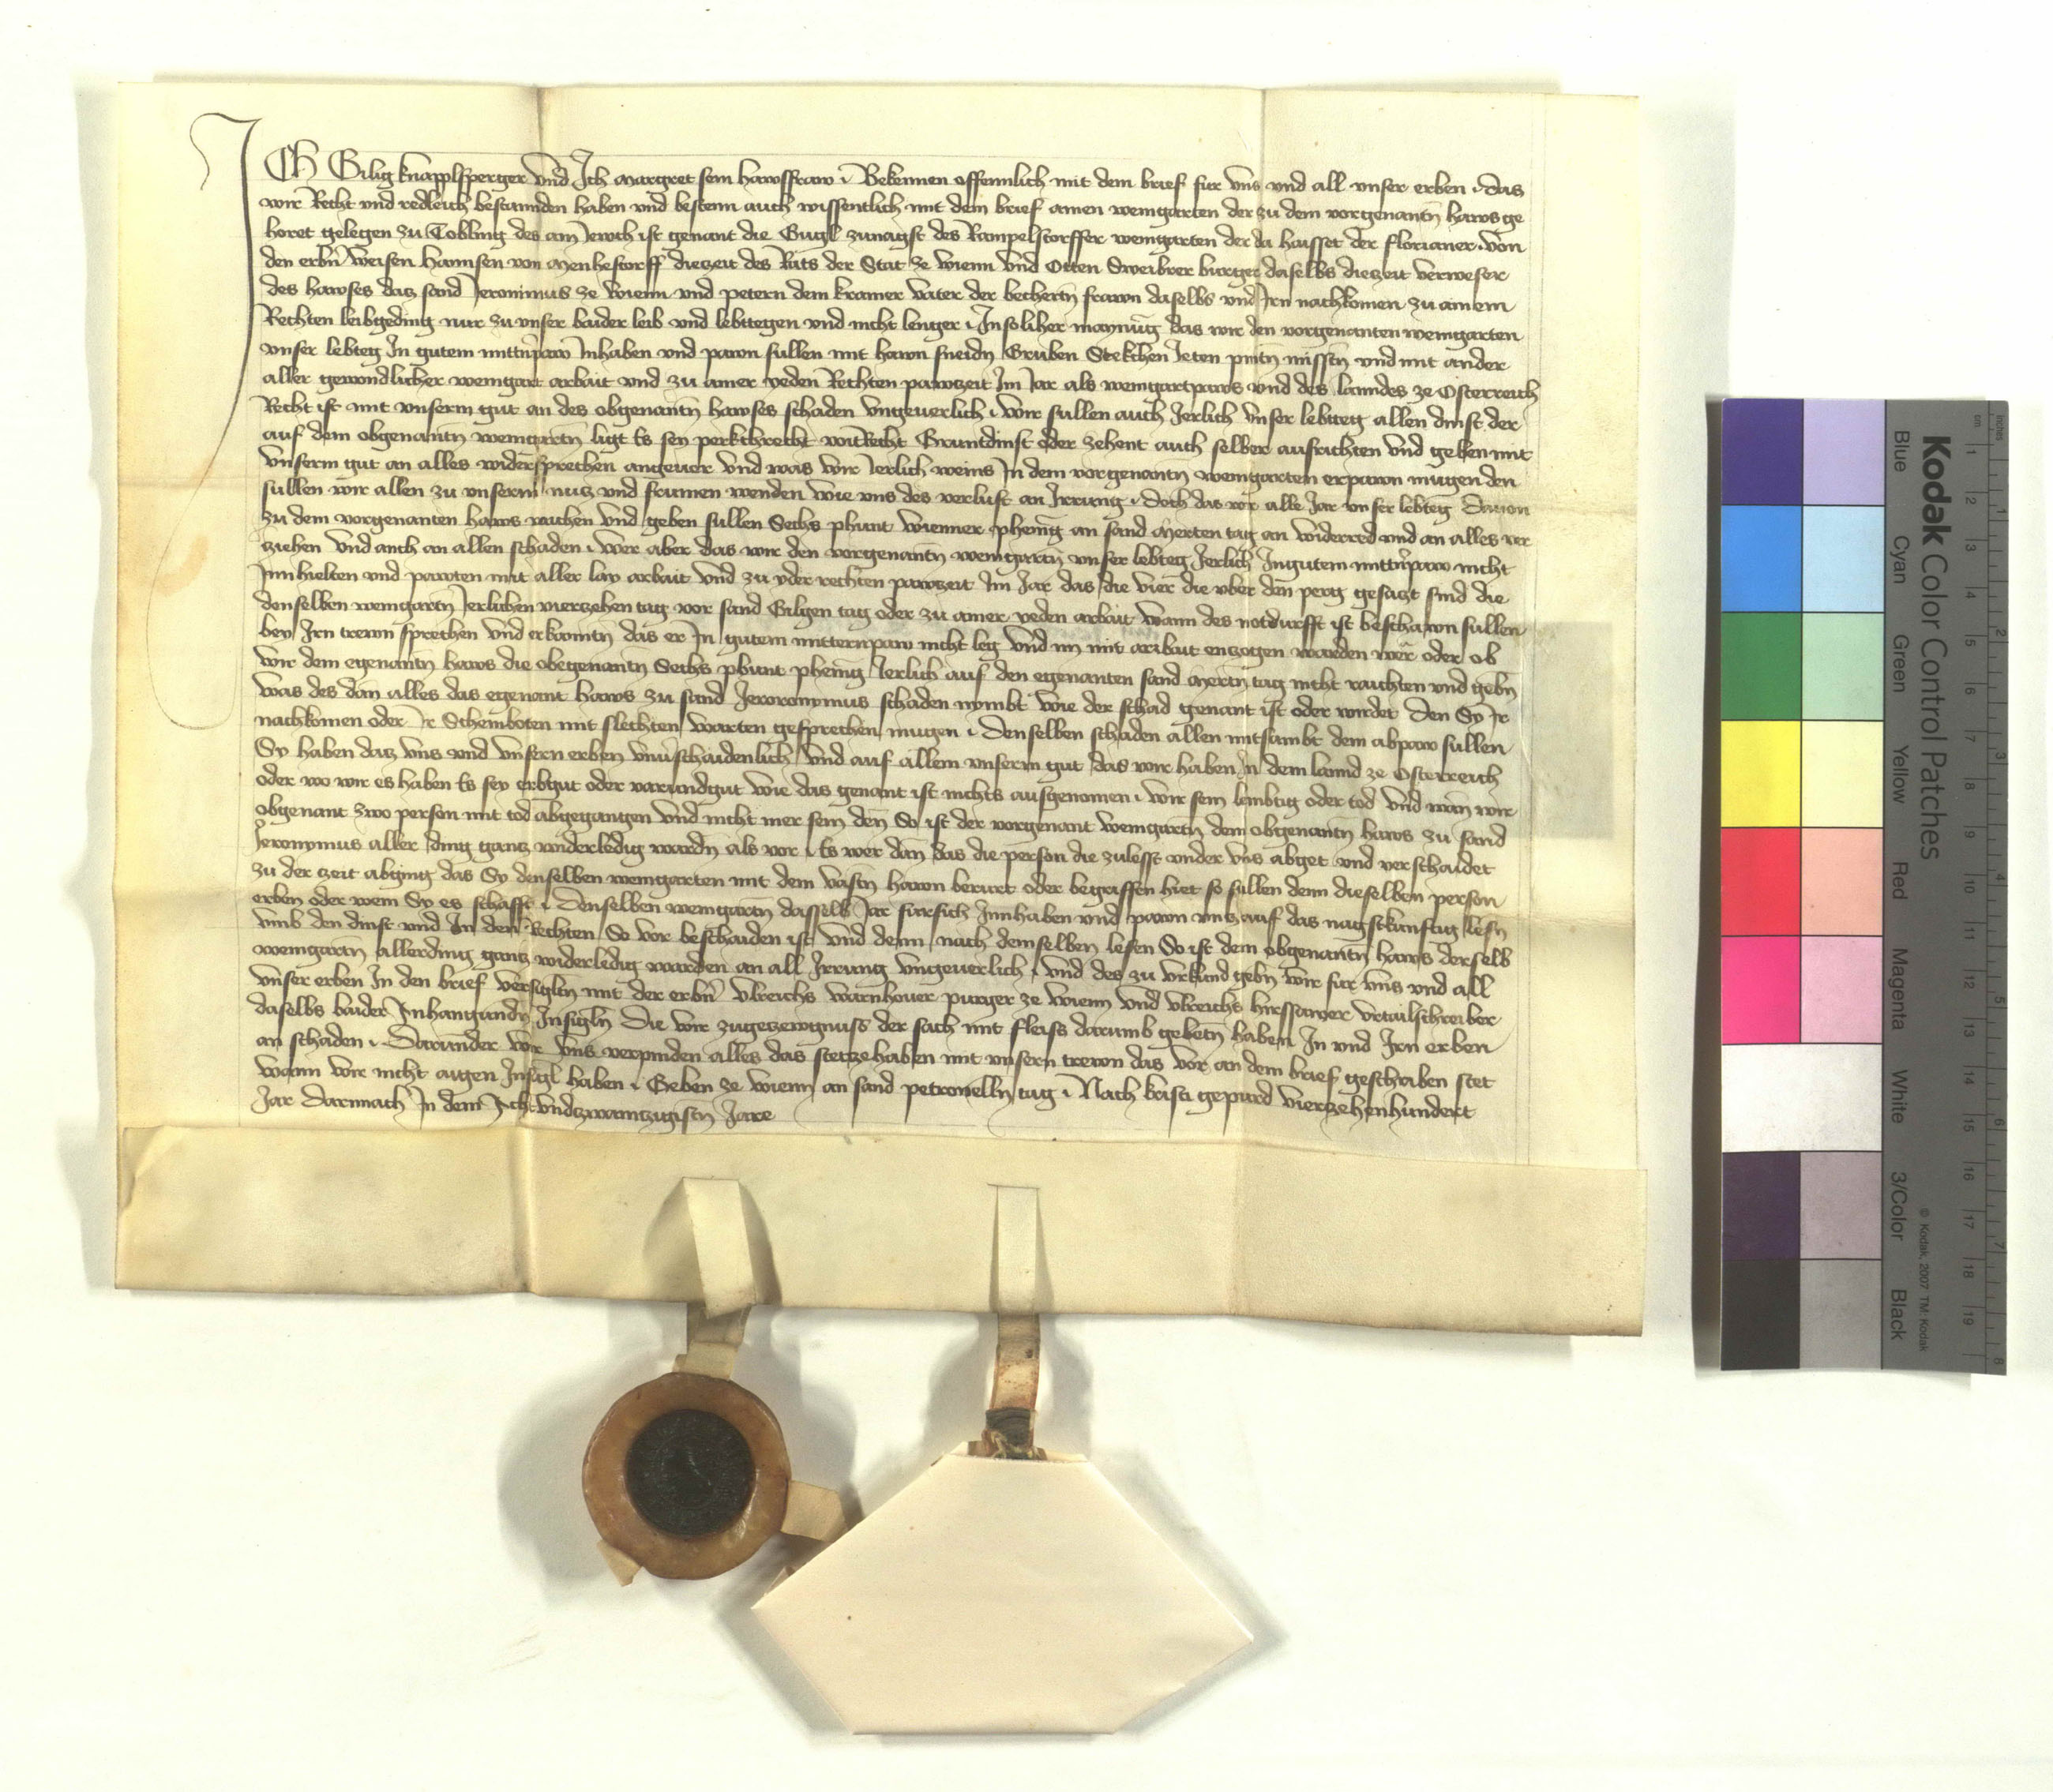 ICh Gilig knapplsperger Vnd Ich margret sein hawsfraw Bekennen offennlich mit dem brief fur vns vnd all vnser erben das
wir Recht vnd redleich bestannden haben vnd bestenn auch wissentlich mit dem brief ainen weingarten der zu dem vorgenantn haws ge
horet gelegen zu Tobling des ain Jewch ist genant die Gugl zunagst des Rampelstorffer weingarten der da haisset der florianer von
den erbn weisen hannsen von dieczeit des Rats der Stat ze wienn vnd Otten burger daselbs dieczeit verweser
des hawses daz sand Jeronimus ze wienn vnd petern dem kramer vater der frawn daselbs vnd Irn nachkomen zu ainem
Rechten leibgeding nur zu vnser baider leib vnd lebttegen vnd nicht lenger Insoliher maynung das wir den vorgenanten weingarten
vnser lebteg In gutem mittnpaw Innhaben vnd pawn sullen mit hawn sneidn Gruben Stekchen Jeten pintn misstn vnd mit ander
aller gewondlicher weingart arbait vnd zu ainer yeden Rechten pawzeit Im Jar als weingartpaws vnd des lanndes ze Osterreich
Recht ist mit vnserm gut an des obgenantn hawses schaden vngeuerlich wir sullen auch Jerlich vnser lebtteg allen dinst der
auf dem obgenantn weingartn ligt Es sey perkchrecht voitRecht Gruntdinst oder zehent auch selber ausrichten vnd geben mit
vnserm gut an alles widersprechen angeuer vnd was wir Jerlich weins In dem vorgenantn weingarten erpawn mugen den
sullen wir allen zu vnserm nucz vnd frumen wenden wie vns des verlust an Irrung Doch das wir alle Jar vnser lebteg Dauon
zu dem vorgenanten haws raichen vnd geben sullen Sechs phunt wienner phenig an sand Merten tag an widerred vnd an alles ver
ziehen vnd auch an allen schaden wer aber das wir den vorgenantn weingartn vnser lebteg Jerlich Ingutem mittnpaw nicht
Innhielten vnd pawten mit aller lay arbait vnd zu yder rechten pawzeit Im Jar das die vier die vber den perg gesaczt sind die
denselben weingartn Jerlichen vierzehen tag vor sand Gilgen tag oder zu ainer yeden arbait wann des notdurfft ist beschawn sullen
bey Irn trewn sprechen vnd erkanntn das er In gutem mitternpaw nicht leg vnd im mit arbait enzogen warden wer oder ob
wir dem egenantn haws die obegenantn Sechs phunt phenig Jerlich auf den egenanten sand Mertn tag nicht raichten vnd gebn
was des dan alles das egenant haws zu sand Jeroronymus schaden nymbt wie der schad genant ist oder wirdet Den Sy Ir
nachkomen oder Ir Scheinboten mit slechten warten gesprechen mugen Denselben schaden allen mitsambt dem abpaw sullen
Sy haben daz vns vnd vnsern erben vnuerschaidenlich vnd auf allem vnserm gut das wir haben In dem lannd ze Osterreich
oder wo wir es haben Es sey erbgut oder varundgut wie das genant ist nichts ausgenomen wir sein lembtig oder tod vnd wan wir
obgenant zwo person mit tod abgegangen vnd nicht mer sein den So ist der vorgenant weingartn dem obgenantn haws zu sand
Jeronymus aller ding gancz widerledig wardn als vor Es wer dan das die person die zulesst vnder vns abget vnd verschaidet
zu der zeit abging das Sy denselben weingarten mit dem vastn hawn berurt oder begriffen hiet so sullen denn dieselben person
erben oder wem Sy es schafft Denselben weingartn dasselb Jar fursich Innhaben vnd pawn vncz auf das nagstkunftig lesn
vmb den dinst vnd In den Rechten So vor beschaiden ist vnd denn nach demselben lesen So ist dem obgenantn haws derselb
weingartn allerding gancz widerledig warden an all Irrung vngeuerlich vnd des zu vrkund gebn wir fur vns vnd all
vnser erben In den brief versigltn mit der erbn Vlreichs warnhouer purger ze wienn vnd vlreichs hirssawer vrtailschreiber
daselbs baider Inhangundn Insigln Die wir zugezewgnuss der sach mit fleiss darumb gebetn haben In vnd Irn erben
an schaden Darunder wir vns verpinden alles das stetzehaben mit vnsern trewn das vor an dem brief geschriben stet
wann wir nicht aigen Insigl haben Geben ze wienn an sand petronelln tag Nach kristi gepurd vierzehenhundert
Jar Darnnach In dem Acht vndczwainczigistn Jare
Kodak Color Control Patches
Blue Cyan Green Yellow Red Magenta White 3/Color Black
© Kodak, 2007 TM: Kodak
inches 1 2 3 4 5 6 7 8
cm 1 2 3 4 5 6 7 8 9 10 11 12 13 14 15 16 17 18 19